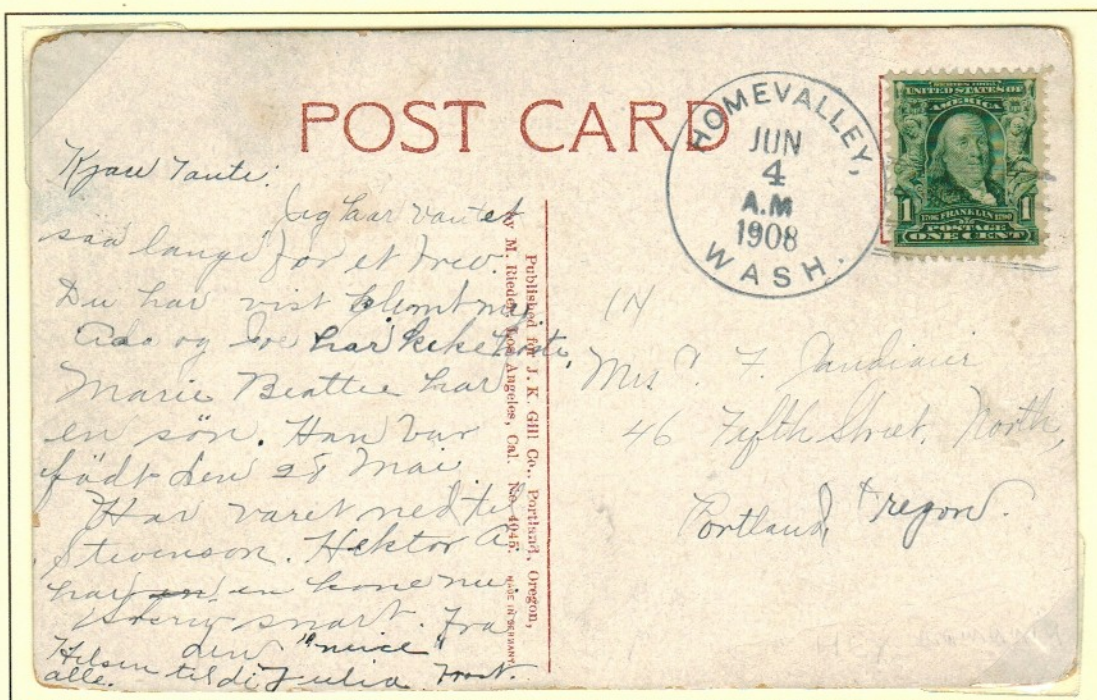 POST CARD
HOMEVALLEY,
JUN
4
A.M
1908
WASH.
SERIES 1902
UNITED STATES OF
AMERICA
1 1
1706 FRANKLIN 1790
POSTAGE
ONE CENT
Kjære Tante:
Jeg har ventet
saa lange for et brev.
Du har vist glemt mig
Ada og Joe har kike hoste,
Marie Beattie har
en sön. Han var
födt den 28 Mai
Har varet ned til
Stevenson. Hektor A.
har en en kone nu.
Skriv snart. Fra
den "niece"
Hilsen til di Julia
alle.
Published for J. K. Gill Co., Portland, Oregon,
by M. Rieder, Los Angeles, Cal. No. 4045. MADE IN GERMANY.
Mrs F.
46 Fifth Street, North,
Portland, Oregon.